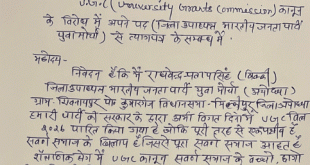 U.G.C (University Grants Commission) कानून
के विरोध में अपने पद (जिला उपाध्यक्ष भारतीय जनता पार्टी
युवा मोर्चा) से त्यागपत्र के सम्बन्ध में
महोदय-
निवेदन है कि मैं
जिला उपाध्यक्ष भारतीय जनता पार्टी युवा मोर्चा (अयोध्या)
ग्राम पो० कुमारगंज विधानसभा - मिल्कीपुर जिला अयोध्या
हमारी पार्टी की सरकार के द्वारा अभी विगत दिनों UGC बिल
2026 पारित किया गया है जोकि पूरी तरह से
सवर्ण समाज के जिससे पूरा सवर्ण समाज आहत है
शैक्षणिक क्षेत्र में UGC कानून सवर्ण समाज के बच्चों,